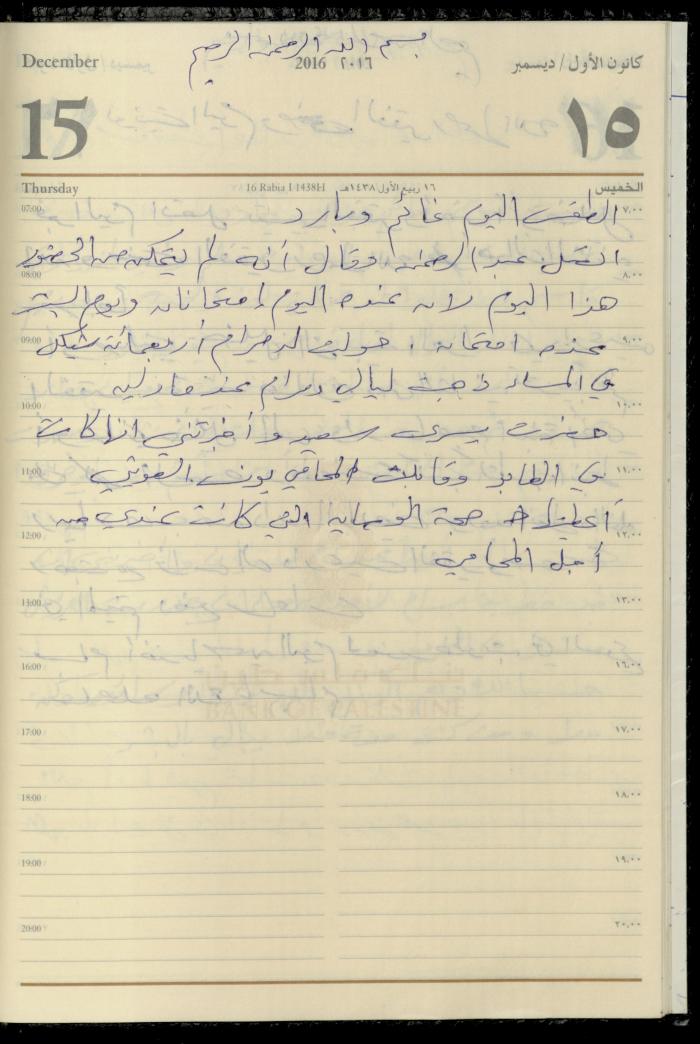 بسم الله الرحمن الرحيم
December
2016 ٢٠١٦
كانون الأول / ديسمبر
15
١٥
Thursday
16 Rabia I 1438H
١٦ ربيع الأول ١٤٣٨هـ
الخميس
07:00 ٧,٠٠
الطقس اليوم غائم وبارد
اتصل عبد الرحمن وقال أنه لم يتمكن من الحضور
08:00 ٨,٠٠
هذا اليوم لان عنده اليوم إمتحانان ويوم السبت
09:00 ٩,٠٠
عنده امتحان، أربعمائة شيكل
في المساء ذهبت ليالي ومرام عند مارلين
10:00 ١٠,٠٠
حضرت يسرى سعيد وأخبرتني انها كانت
11:00 ١١,٠٠
في الطابو وقابلت المحامي
أعطيتها حجة التي كانت عندي من
12:00 ١٢,٠٠
أجل المحامي
13:00 ١٣,٠٠
16:00 ١٦,٠٠
BANK OF PALESTINE
17:00 ١٧,٠٠
18:00 ١٨,٠٠
19:00 ١٩,٠٠
20:00 ٢٠,٠٠